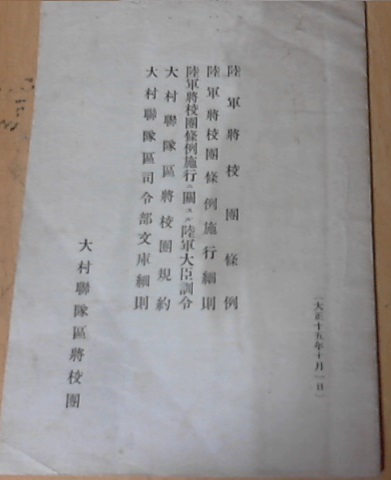 陸軍將校團條例
陸軍將校團條例施行細則
陸軍將校團條例施行ニ關スル陸軍大臣訓令
大村聯隊區將校團規約
大村聯隊區司令部文庫細則
（大正十五年十月一日）
大村聯隊區將校團